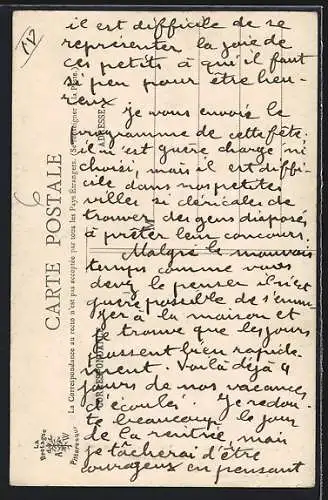 il est difficile de se
représenter la joie de
ces petits à qui il faut
si peu pour être heu-
reux
Je vous envoie le
programme de cette fête.
il n'est guère chargé ni
choisi, mais il est diffi-
cile dans nos petites
villes si de
trouver des gens disposés
à prêter leur concours.
Malgré le mauvais
temps comme vous
devez le penser il n'est
guère possible de s'ennu-
yer à la maison et
je trouve que les jours
passent bien rapide-
ment. Voilà déjà 4
jours de nos vacances
d'écoulés. Je redou-
te beaucoup le jour
de la rentrée, mais
je tâcherai d'être
courageux en pensant
CARTE POSTALE
La Correspondance au recto n'est pas acceptée par tous les Pays Étrangers. (Se renseigner à la Poste.)
CORRESPONDANCE
ADRESSE
La
Bretagne
Pittoresque